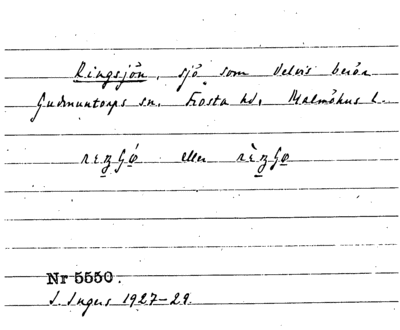 Ringsjön, sjö som delvis berör
Gudmuntorps sn. Frosta hd. Malmöhus l.
eller
Nr 5550.
I. Ingers 1927-29.